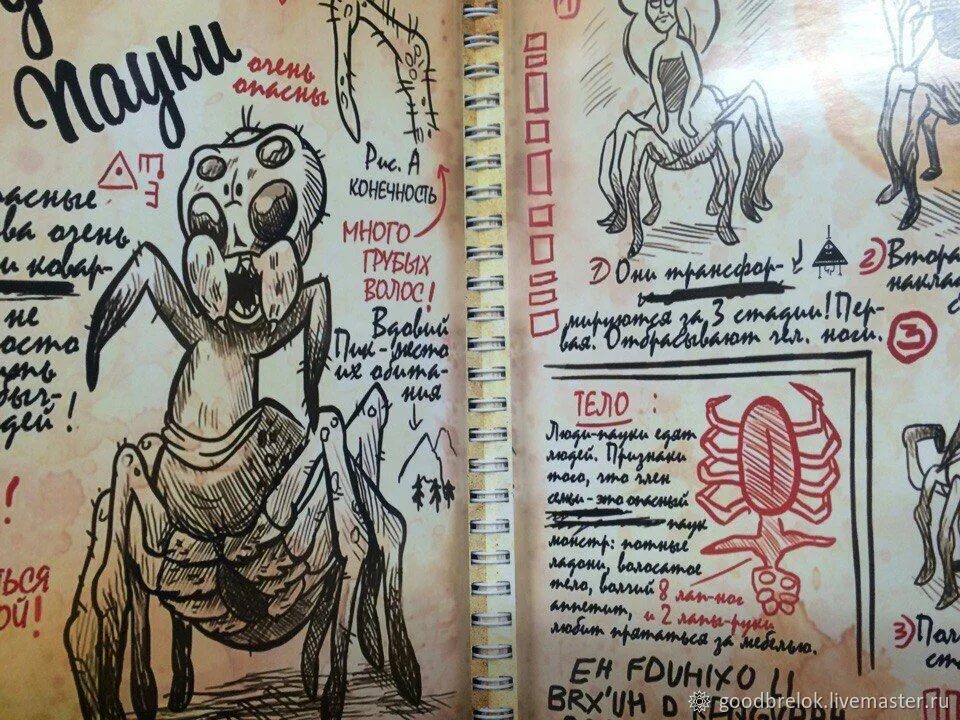 Пауки
очень
опасны
Рис. А
КОНЕЧНОСТЬ
МНОГО
ГРУБЫХ
ВОЛОС!
Вдовий
Пик - место
их обита-
ния
очень
и ковар-
не
!
!
ОЙ!
1) Они трансфор-
мируются за 3 стадии! Пер-
вая. Отбрасывают чел. ноги.
2) Втора
накла
3
ТЕЛО :
Люди-пауки едят
людей. Признаки
того, что член
семьи - это опасный
паук
монстр: потные
ладони, волосатое
тело, волчий 8 лап-ног
аппетит, и 2 лапы-руки
любит прятаться за мебелью.
3)
EH FDUHIXO LI
BRX'UH D
goodbrelok.livemaster.ru